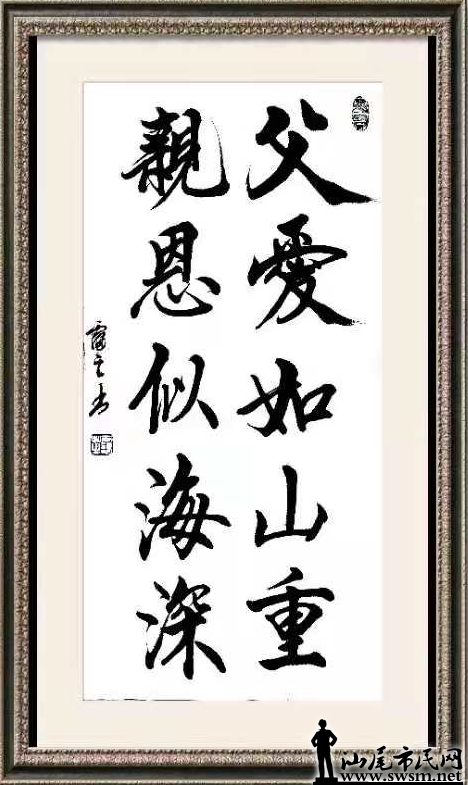 父愛如山重
親恩似海深
汕尾市民网
www.swsm.net